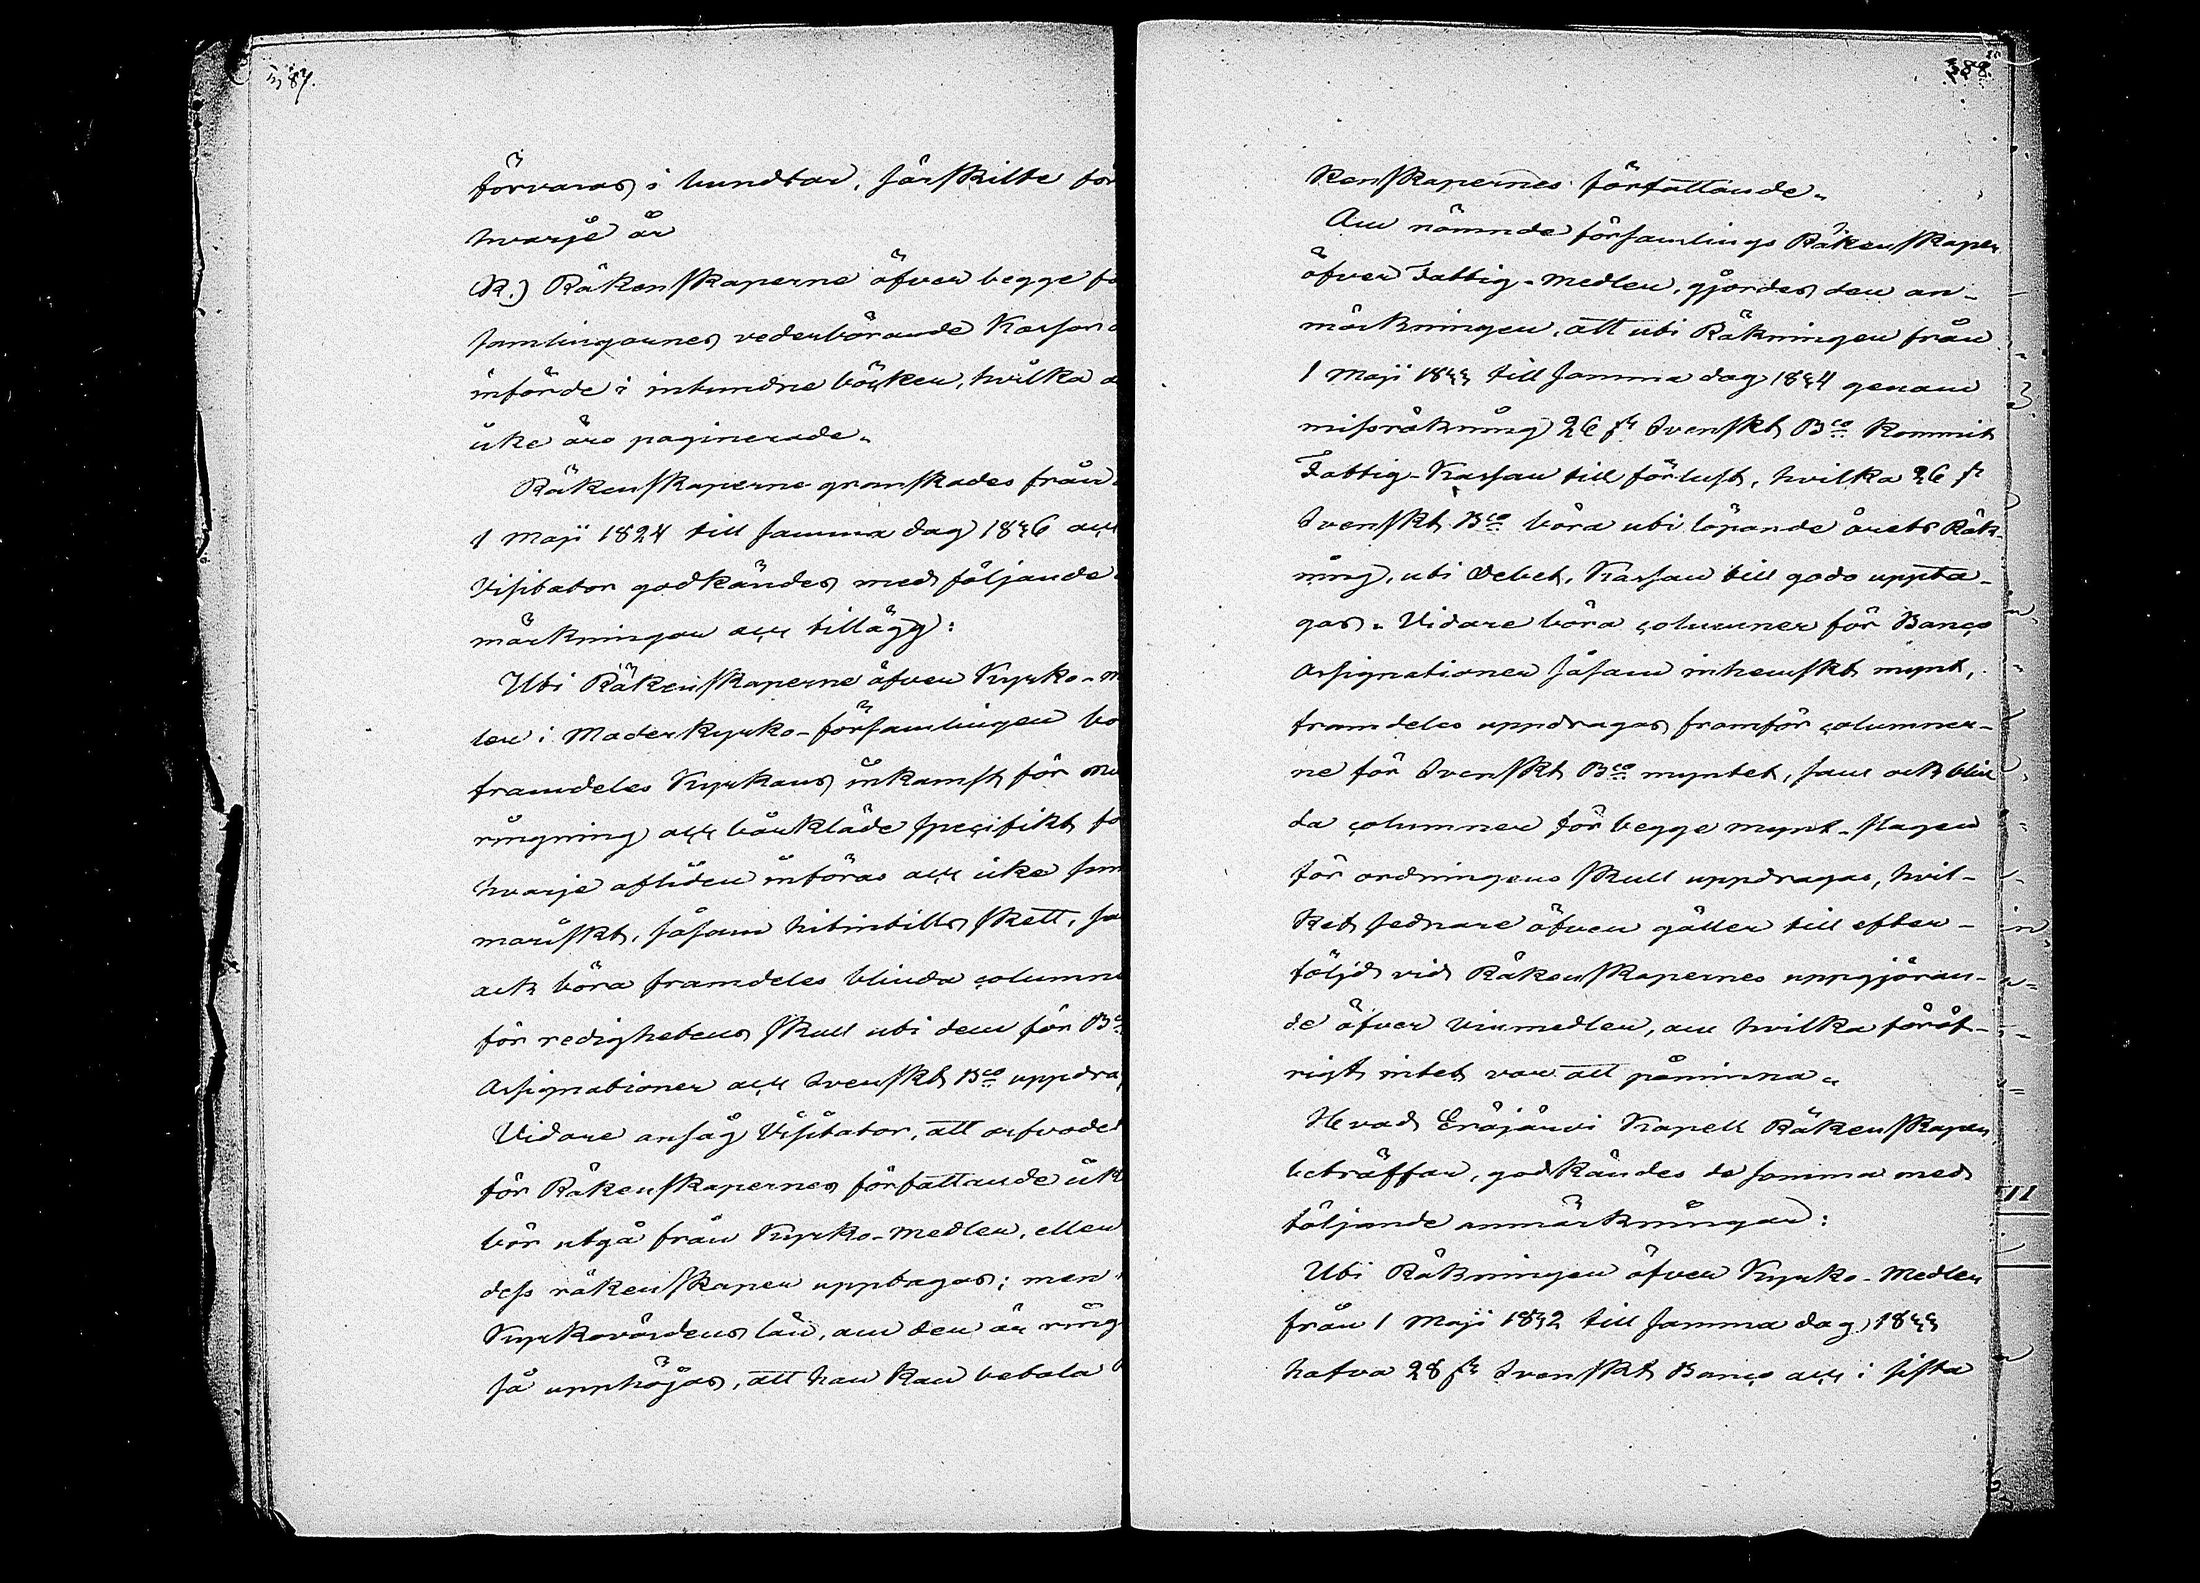 387.
förvaras i bundtar, särskilte för
hvarje år
(K.) Räkenskaperne öfver begge fö
samlingarnes vederbörande Kassor ä
införde i inbundne böcker, hvilka d
icke äro paginerade.
Räkenskaperne granskades från
1 Maji 1824 till samma dag 1836 och
Visitator godkändes med följande
märkningar och tillägg:
Uti Räkenskaperne öfver Kyrko-m
len i Moderkyrko-församlingen bö
framdeles Kyrkans inkomst för
ringning och bårkläde specifikt fö
hvarje afliden införas och icke sum
mariskt, såsom hitintills skett, sa
ock böra framdeles blinda columne
för redighetens skull uti dem för Bc
Assignationer och Svenskt Bco uppdra
Vidare ansåg Visitator, att arfvodet
för Räkenskapernes författande ick
bör utgå från Kyrko-medlen, eller
dess räkenskaper upptagas; men
Kyrkovärdens lön, om den är ring
så upphöjas, att han kan betala
388.
kenskapernes författande.
Om nämnde församlings Räkenskaper
öfver Fattig-medlen, gjordes den an-
märkningen, att uti Räkningen från
1 Maji 1833 till samma dag 1834 genom
missräkning 26 sk Svenskt Bco kommit
Fattig-Kassan till förlust, hvilka 26 sk
Svenskt Bco böra uti löpande årets Räk-
ning, uti Debet, Kassan till godo uppta-
gas. Vidare böra columner för Banco
Assignationer såsom inhemskt mynt,
framdeles uppdragas framför columner-
ne för Svenskt Bco myntet, som ock blin
da columner för begge mynt-slagen
för ordningens skull uppdragas, hvil-
ket sednare äfven gäller till efter-
följd vid Räkenskapernes uppgjöran-
de öfver vinmedlen, om hvilka föröf-
rigt intet var att påminna.
Hvad Eräjärvi Kapell Räkenskaper
beträffar, godkändes de samma med
följande anmärkningar:
Uti Räkningen öfver Kyrko-Medlen
från 1 Maji 1832 till samma dag 1833
hafva 28 sk Svenskt Banco och i sista